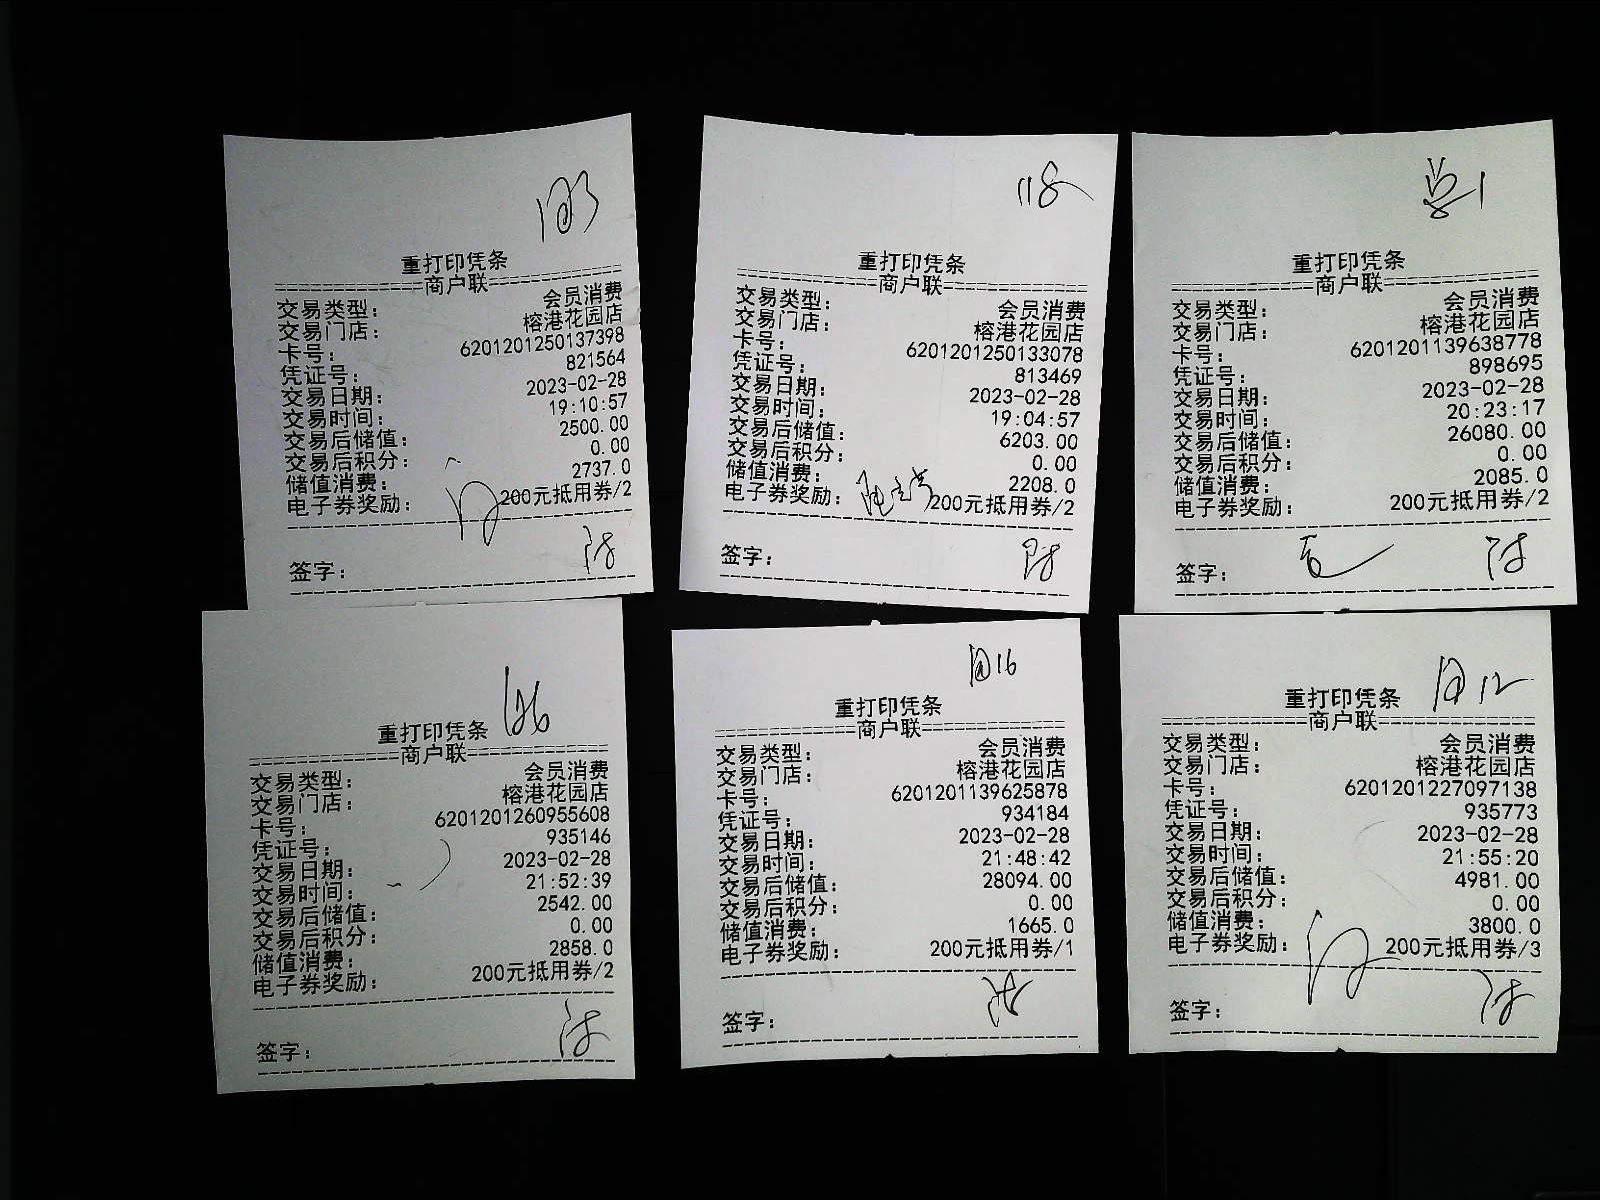 重打印凭条
商户联
交易类型： 会员消费
交易门店： 榕港花园店
卡号： 6201201250137398
凭证号： 821564
交易日期： 2023-02-28
交易时间： 19:10:57
交易后储值： 2500.00
交易后积分： 0.00
储值消费： 2737.0
电子券奖励： 200元抵用券/2
签字：
118
重打印凭条
商户联
交易类型： 会员消费
交易门店： 榕港花园店
卡号： 6201201250133078
凭证号： 813469
交易日期： 2023-02-28
交易时间： 19:04:57
交易后储值： 6203.00
交易后积分： 0.00
储值消费： 2208.0
电子券奖励： 200元抵用券/2
签字：
重打印凭条
商户联
交易类型： 会员消费
交易门店： 榕港花园店
卡号： 6201201139638778
凭证号： 898695
交易日期： 2023-02-28
交易时间： 20:23:17
交易后储值： 26080.00
交易后积分： 0.00
储值消费： 2085.0
电子券奖励： 200元抵用券/2
签字：
重打印凭条
商户联
交易类型： 会员消费
交易门店： 榕港花园店
卡号： 6201201260955608
凭证号： 935146
交易日期： 2023-02-28
交易时间： 21:52:39
交易后储值： 2542.00
交易后积分： 0.00
储值消费： 2858.0
电子券奖励： 200元抵用券/2
签字：
重打印凭条
商户联
交易类型： 会员消费
交易门店： 榕港花园店
卡号： 6201201139625878
凭证号： 934184
交易日期： 2023-02-28
交易时间： 21:48:42
交易后储值： 28094.00
交易后积分： 0.00
储值消费： 1665.0
电子券奖励： 200元抵用券/1
签字：
重打印凭条
商户联
交易类型： 会员消费
交易门店： 榕港花园店
卡号： 6201201227097138
凭证号： 935773
交易日期： 2023-02-28
交易时间： 21:55:20
交易后储值： 4981.00
交易后积分： 0.00
储值消费： 3800.0
电子券奖励： 200元抵用券/3
签字：